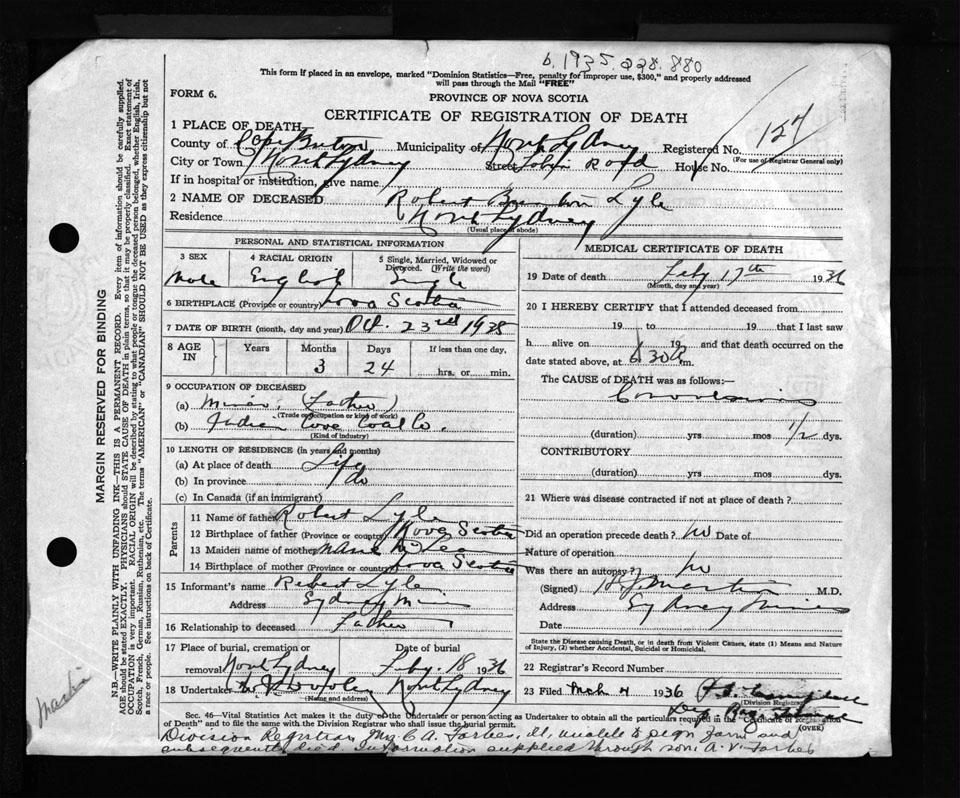 b. 1935. 228. 880
This form if placed in an envelope, marked "Dominion Statistics—Free, penalty for improper use, $300," and properly addressed
will pass through the Mail "FREE"
FORM 6.
PROVINCE OF NOVA SCOTIA
CERTIFICATE OF REGISTRATION OF DEATH
127
1 PLACE OF DEATH—
County of Cape Breton Municipality of North Sydney Registered No.
(For use of Registrar General only)
City or Town North Sydney Street Tobin Road House No.
If in hospital or institution, give name
2 NAME OF DECEASED Robert Lyle
Residence North Sydney
(Usual place of abode)
PERSONAL AND STATISTICAL INFORMATION
3 SEX 4 RACIAL ORIGIN 5 Single, Married, Widowed or
Divorced. (Write the word)
Male English Single
6 BIRTHPLACE (Province or country) Nova Scotia
7 DATE OF BIRTH (month, day and year) Oct. 23rd 1935
8 AGE IN Years Months Days If less than one day,
3 24 hrs. or min.
9 OCCUPATION OF DECEASED
(a) Miner (Father)
(Trade or occupation or kind of work)
(b) Indian Cove Coal Co.
(Kind of industry)
10 LENGTH OF RESIDENCE (in years and months)
(a) At place of death Life
(b) In province do
(c) In Canada (if an immigrant)
Parents
11 Name of father Robert Lyle
12 Birthplace of father (Province or country) Nova Scotia
13 Maiden name of mother
14 Birthplace of mother (Province or country) Nova Scotia
15 Informant's name Robert Lyle
Address Sydney Mines
16 Relationship to deceased Father
17 Place of burial, cremation or Date of burial
removal North Sydney Feby. 18 1936
18 Undertaker North Sydney
MEDICAL CERTIFICATE OF DEATH
19 Date of death Feby 17th 1936
(Month, day and year)
20 I HEREBY CERTIFY that I attended deceased from
19 to 19 that I last saw
h alive on 19 and that death occurred on the
date stated above, at 6.30 A m.
The CAUSE of DEATH was as follows:—
(duration) yrs mos 1/2 dys.
CONTRIBUTORY
(duration) yrs mos dys.
21 Where was disease contracted if not at place of death?
Did an operation precede death? No Date of
Nature of operation
Was there an autopsy? No
(Signed) M.D.
Address Sydney Mines
Date
State the Disease causing Death, or in death from Violent Causes, state (1) Means and Nature
of Injury, (2) whether Accidental, Suicidal or Homicidal.
22 Registrar's Record Number
23 Filed Mch 4 1936
(Division Registrar)
Dep Reg
Sec. 46—Vital Statistics Act makes it the duty of the Undertaker or person acting as Undertaker to obtain all the particulars required in the "Certificate of Registration
of Death" and to file the same with the Division Registrar who shall issue the burial permit.
(OVER)
Division Registrar Mrs. C A. Forbes, ill, unable to sign form and
subsequently died. Information supplied through son: A. V. Forbes
MARGIN RESERVED FOR BINDING
N.B.—WRITE PLAINLY WITH UNFADING INK—THIS IS A PERMANENT RECORD. Every item of information should be carefully supplied.
AGE should be stated EXACTLY. PHYSICIANS should STATE CAUSE OF DEATH in plain terms, so that it may be properly classified. Exact statement of
OCCUPATION is very important. RACIAL ORIGIN will be described by stating to what people or tongue the deceased person belonged, whether English, Irish,
Scotch, French, German, Russian, Ruthenian, etc. The terms "AMERICAN" or "CANADIAN" SHOULD NOT BE USED as they express citizenship but not
a race or people. See instructions on back of Certificate.